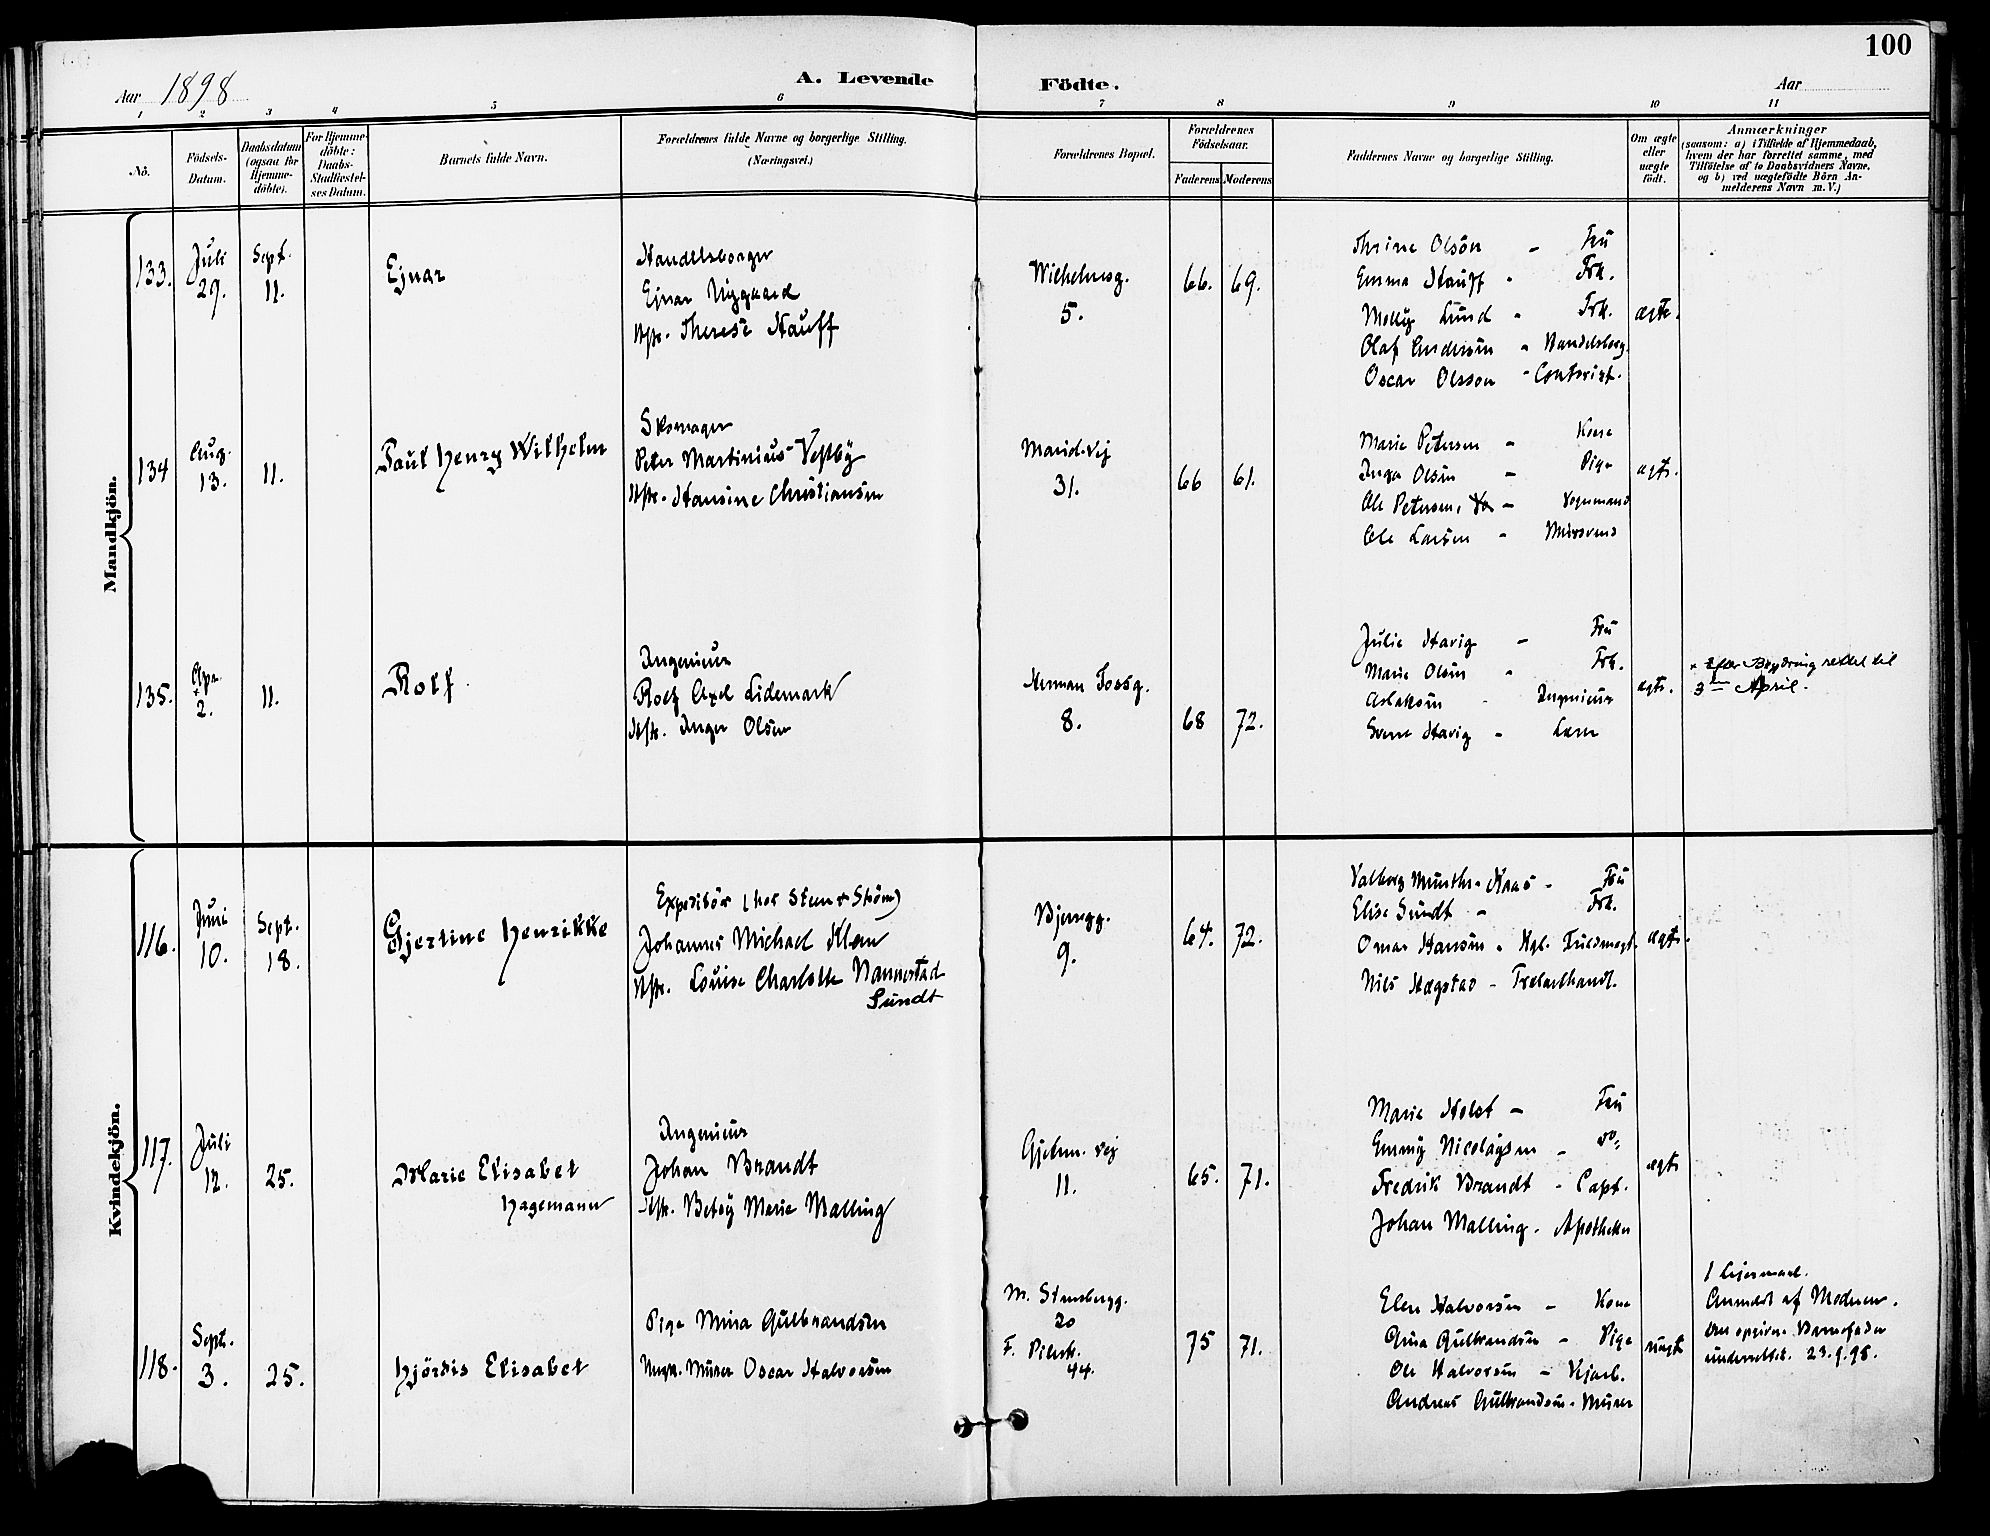 100
Aar 1898
A. Levende Födte.
Aar
1 2 3 4 5 6 7 8 9 10 11
No.
Födsels-Datum.
Daabsdatum (ogsaa for Hjemmedöbte).
For Hjemmedöbte: Daabs-Stadfæstelses Datum.
Barnets fulde Navn.
Forældrenes fulde Navne og borgerlige Stilling. (Næringsvei.)
Forældrenes Bopæl.
Forældrenes Födselsaar.
Faderens Moderens
Faddernes Navne og borgerlige Stilling.
Om ægte eller uægte födt.
Anmærkninger
(saasom: a) i Tilfælde af Hjemmedaab,
hvem der har forrettet samme, med
Tilföielse af to Daabsvidners Navne,
og b) ved uægtefödte Börn An-
melderens Navn m. V.)
Mandkjön.
133.
Juli 29.
Sept. 11.
Ejnar
Handelsborger
Ejnar Nygaard
Hstr. Therese Hauff
Wilhelmsg.
5.
66. 69.
Thrine Olsön - Fru
Emma Hauff - Frk.
Molly Lund - Frk.
Olaf Andersön - Handelsborg.
Oscar Olsson - Contorist.
ægte.
134
Aug. 13.
11.
Paul Henry Wilhelm
Skomager
Peter Martinius Vestby
Hstr. Hansine Christiansen
Marid.vej
31.
66 61.
Marie Petersen - Kone
Inga Olsen - Pige
Ole Petersen, - Vognmand
Ole Larsen - Mursvend
ægte.
135.
Apr. + 2.
11.
Rolf
Ingenieur
Rolf Axel Lidemark
Hstr. Inger Olsen
Herman Fossg.
8.
68 72.
Julie Havig - Fru
Marie Olsen - Frk.
Aslaksen - Ingenieur
Sverre Havig - Lærer
ægte.
+ efter Begjæring rettet til
3die April.
Kvindekjön.
116.
Juni 10.
Sept. 18.
Gjertine Henrikke
Expeditör (hos Steen & Ström)
Johannes Michael Klem
Hstr. Louise Charlotte Nannestad
Sundt
Bjerregg.
9.
64. 72.
Valborg Munthe-Kaas - Fru
Elise Sundt - Frk.
Omar Hansen - Kgl. Fuldmægt.
Nils Hægstad - Trælasthandl.
ægte.
117.
Juli 12.
25.
Marie Elisabet
Hagemann
Ingenieur
Johan Brandt
Hstr. Betsy Marie Malling
Gjetem. vej
11.
65. 71.
Marie Holst - Fru
Emmy Nicolaysen - do
Fredrik Brandt - Capt.
Johan Malling. Apotheker
ægte
118.
Sept. 3.
25.
Hjördis Elisabet
Pige Mina Gulbrandsen
Ungk. Murer Oscar Halvorsen
M. Stensbergg.
20
F. Pilestr.
44.
75 71.
Elen Halvorsen - Kone
Anna Gulbrandsen - Pige
Ole Halvorsen - Arb.
Andreas Gulbrandsen - Murer
uægte
1 Leiermaal.
Anmeldt af Moderen.
Den opgivne Barnefader
underrettet. 23.9.98.